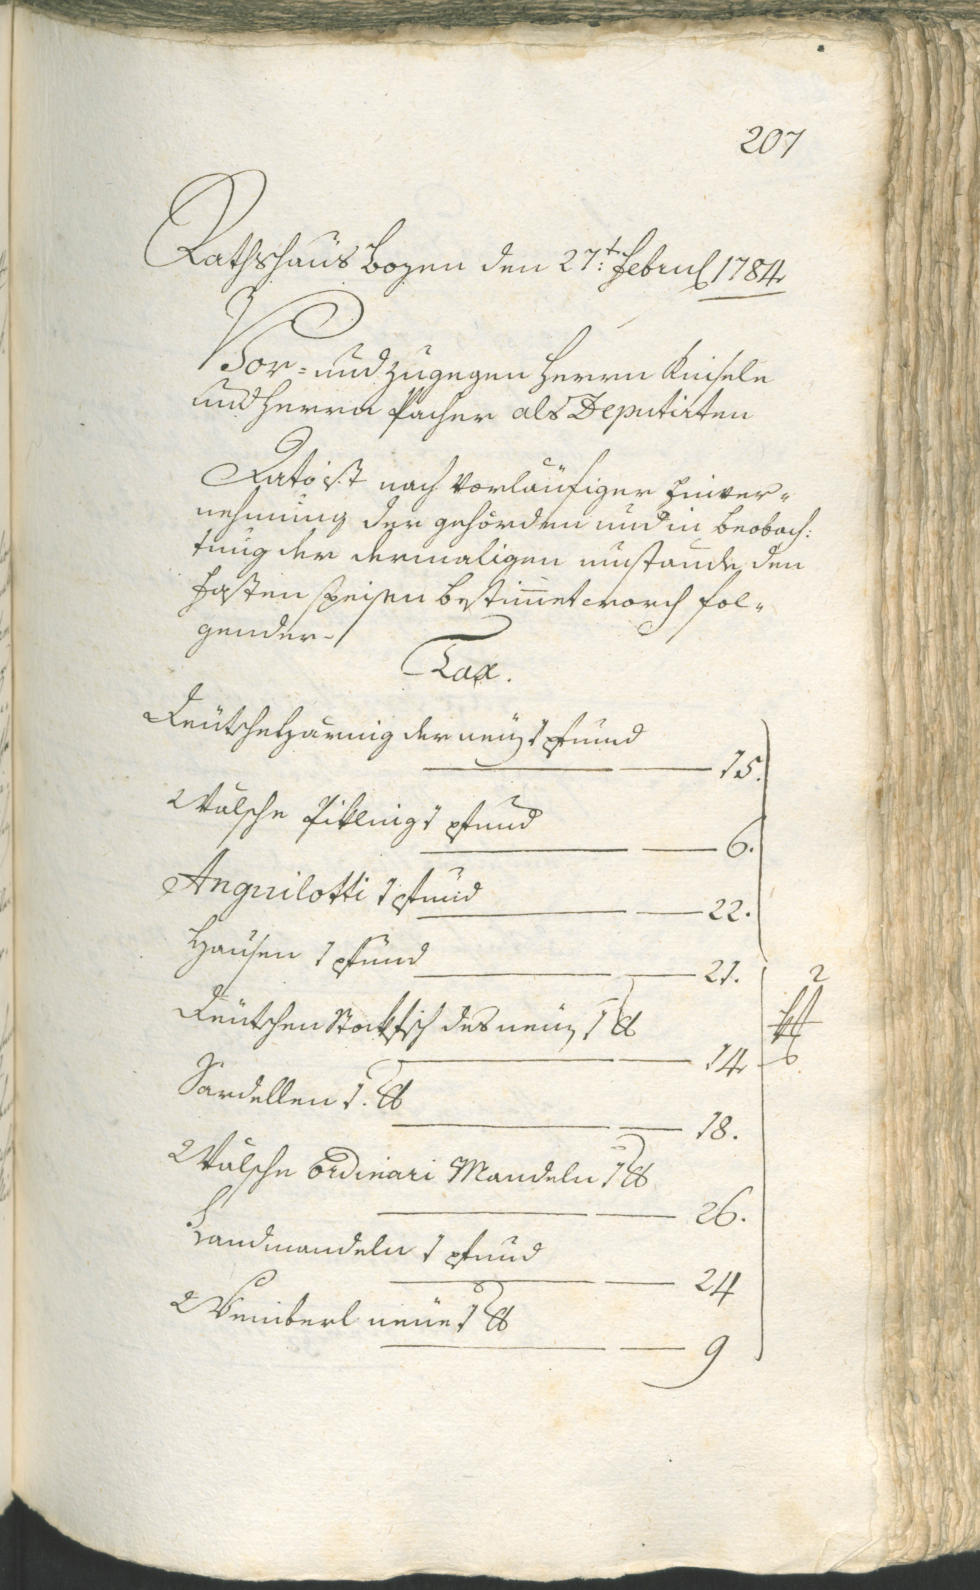 207
Rathshaus Bozen den 27:t Februl 1784
Vor- und zugegen Herrn Kuisele
und Herrn Pacher als Deputirten
Dato ist nach vorläufiger Einver=
nehmung der gehörden und in beobach:
tung der dermaligen umstände den
Fasten speisen bestimet worden fol=
gender.
Tax.
Deütsche Häring der neüen 1 pfund
15.
Wälsche Pikling 1 pfund
6.
Anguilotti 1 pfund
22.
Hausen 1 pfund
21.
Deütschen Stockfisch des neüen 1 ℔
14
Sardellen 1. ℔
18.
Wälsche Ordinari Mandeln 1 ℔
26.
Landmandeln 1 pfund
24
Weinberl neüe 1 ℔
9